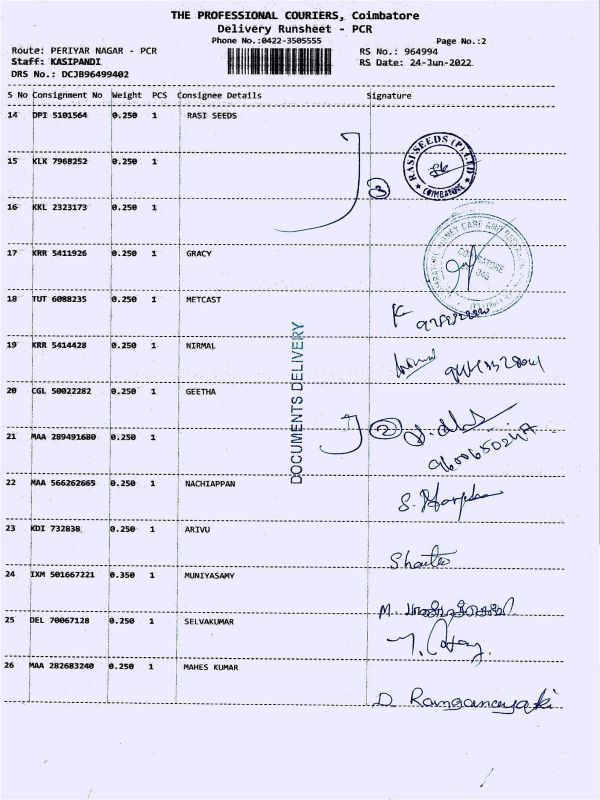 THE PROFESSIONAL COURIERS, Coimbatore
Delivery Runsheet - PCR
Phone No.:0422-3505555
Page No.:2
Route: PERIYAR NAGAR - PCR
RS No.: 964994
Staff: KASIPANDI
RS Date: 24-Jun-2022
DRS No.: DCJB96499402
S No Consignment No Weight PCS Consignee Details Signature
14 DPI 5101564 0.250 1 RASI SEEDS
RASI SEEDS (P) LTD
COIMBATORE
15 KLK 7968252 0.250 1
3
16 KKL 2323173 0.250 1
17 KRR 5411926 0.250 1 GRACY
18 TUT 6088235 0.250 1 METCAST
19 KRR 5414428 0.250 1 NIRMAL
DOCUMENTS DELIVERY
20 CGL 50022282 0.250 1 GEETHA
2
21 MAA 289491680 0.250 1
9600650247
22 MAA 566262665 0.250 1 NACHIAPPAN
23 KDI 732838 0.250 1 ARIVU
24 IXM 501667221 0.350 1 MUNIYASAMY
25 DEL 70067128 0.250 1 SELVAKUMAR
26 MAA 282683240 0.250 1 MAHES KUMAR
D. Ranganayaki